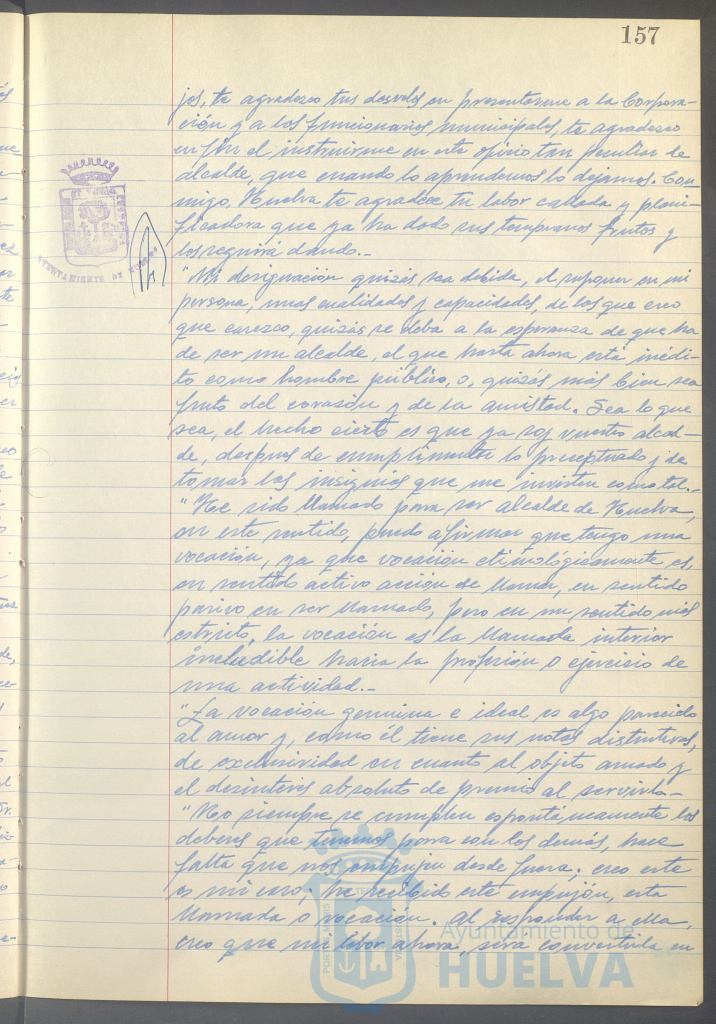 157
jos, te agradezco tus desvelos en presentarme a la Corpora-
ción y a los funcionarios municipales, te agradezco
en fin el instruirme en este oficio tan peculiar de
alcalde, que cuando lo aprendemos lo dejamos. Con-
migo, Huelva te agradece tu labor callada y plani-
ficadora que ya ha dado sus tempranos frutos y
los seguirá dando.-
"Mi designación quizás sea debida, el suponer en mi
persona, unas cualidades y capacidades, de las que creo
que carezco, quizás se deba a la esperanza de que ha
de ser un alcalde, el que hasta ahora está inédi-
to como hombre público, o, quizás más bien sea
fruto del corazón y de la amistad. Sea lo que
sea, el hecho cierto es que ya soy vuestro alcal-
de, después de cumplimentar lo preceptuado y de
tomar las insignias que me invisten como tal.-
"He sido llamado para ser alcalde de Huelva,
en este sentido, puedo afirmar que tengo una
vocación, ya que vocación etimológicamente es,
en sentido activo acción de llamar, en sentido
pasivo en ser llamado, pero en un sentido más
estricto, la vocación es la llamada interior
ineludible hacia la profesión o ejercicio de
una actividad.-
"La vocación genuina e ideal es algo parecido
al amor y, como él tiene sus notas distintivas,
de exclusividad en cuanto al objeto amado y
el desinterés absoluto de premio al servirlo-
"No siempre se cumplen espontáneamente los
deberes que tenemos para con los demás, hace
falta que nos empujen desde fuera; creo este
es mi caso; he recibido este empujón, esta
llamada o vocación. Al responder a ella,
creo que mi labor ahora, será convertirla en
AYUNTAMIENTO DE HUELVA
Ayuntamiento de
HUELVA